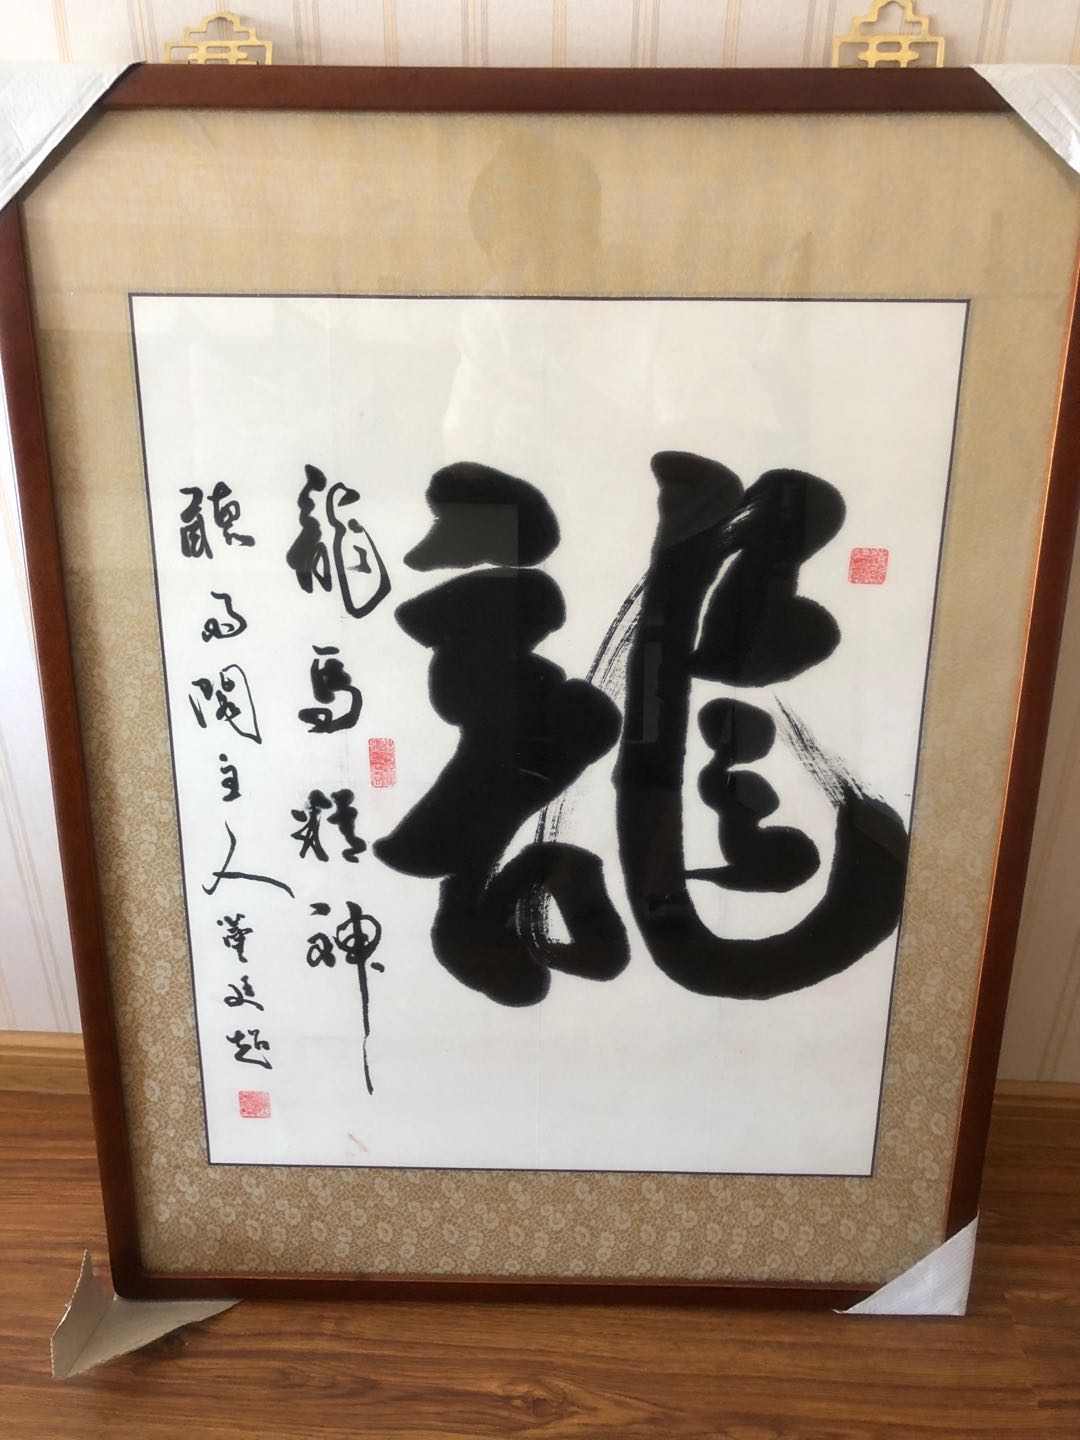 龍
龍馬精神
聽雨閣主人董廷超